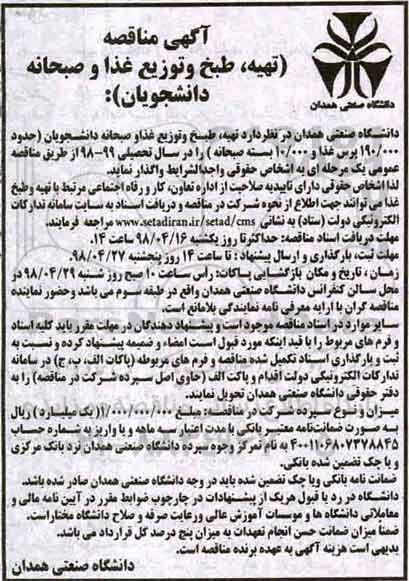 آگهی مناقصه
(تهیه، طبخ وتوزیع غذا و صبحانه
دانشجویان):
دانشگاه صنعتی همدان
دانشگاه صنعتی همدان در نظر دارد تهیه، طبخ وتوزیع غذاو صبحانه دانشجویان (حدود
۱۹۰/۰۰۰ پرس غذا و ۱۰/۰۰۰ بسته صبحانه ) را در سال تحصیلی ۹۹-۹۸ از طریق مناقصه
عمومی یک مرحله ای به اشخاص حقوقی واجدالشرایط واگذار نماید.
لذا اشخاص حقوقی دارای تاییدیه صلاحیت از اداره تعاون، کار و رفاه اجتماعی مرتبط با تهیه وطبخ
غذا می توانند جهت اطلاع از نحوه شرکت در مناقصه و دریافت اسناد به سایت سامانه تدارکات
الکترونیکی دولت (ستاد) به نشانی www.setadiran.ir/setad/cms مراجعه فرمایند.
مهلت دریافت اسناد مناقصه: حداکثر تا روز یکشنبه ۹۸/۰۴/۱۶ ساعت ۱۴.
مهلت ثبت، بارگذاری و ارسال پیشنهاد : تا ساعت ۱۴ روز پنجشنبه ۹۸/۰۴/۲۷.
زمان ، تاریخ و مکان بازگشایی پاکات: رأس ساعت ۱۰ صبح روز شنبه ۹۸/۰۴/۲۹ در
محل سالن کنفرانس دانشگاه صنعتی همدان واقع در طبقه سوم می باشد وحضور نماینده
مناقصه گران با ارایه معرفی نامه نمایندگی بلامانع است.
سایر موارد در اسناد مناقصه موجود است و پیشنهاد دهندگان در مهلت مقرر باید کلیه اسناد
و فرم های مربوط را با قید اینکه مورد قبول است امضاء و ضمیمه پیشنهاد کرده و نسبت به
ثبت و بارگذاری اسناد تکمیل شده مناقصه و فرم های مربوطه (پاکات الف، ب، ج) در سامانه
تدارکات الکترونیکی دولت اقدام و پاکت الف (حاوی اصل سپرده شرکت در مناقصه) را به
دفتر حقوقی دانشگاه صنعتی همدان تحویل نمایند.
میزان و نوع سپرده شرکت در مناقصه: مبلغ ۱/۰۰۰/۰۰۰/۰۰۰( یک میلیارد ) ریال
به صورت ضمانت‌نامه معتبر بانکی با مدت اعتبار سه ماهه و یا واریز به شماره حساب
۴۰۰۱۱۰۶۸۰۷۳۷۸۸۴۵ به نام تمرکز وجوه سپرده دانشگاه صنعتی همدان نزد بانک مرکزی
و یا چک تضمین شده بانکی.
ضمانت نامه بانکی ویا چک تضمین شده باید در وجه دانشگاه صنعتی همدان صادر شده باشد.
دانشگاه در رد یا قبول هریک از پیشنهادات در چارچوب ضوابط مقرر در آیین نامه مالی و
معاملاتی دانشگاه ها و موسسات آموزش عالی ورعایت صرفه و صلاح دانشگاه مختاراست.
ضمناً میزان ضمانت حسن انجام تعهدات به میزان پنج درصد کل قرارداد می باشد.
بدیهی است هزینه آگهی به عهده برنده مناقصه است.
دانشگاه صنعتی همدان